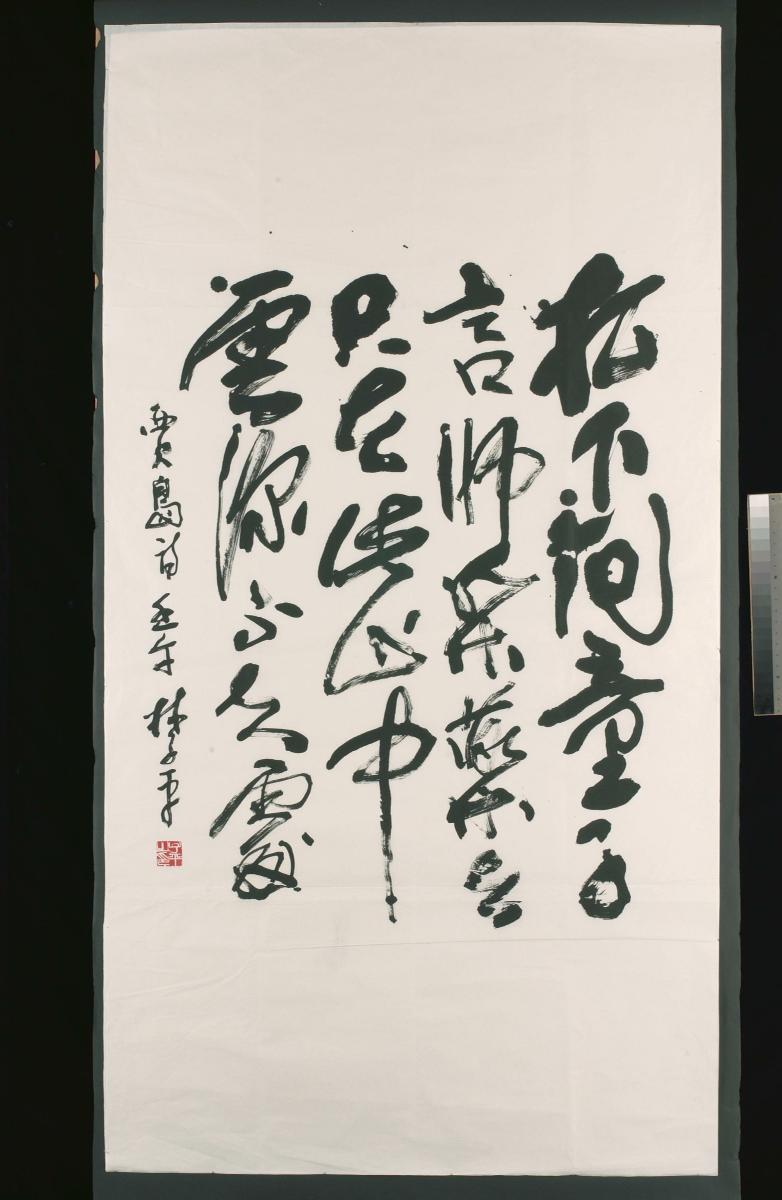 松下問童子
言師采藥去
只在此山中
雲深不知處
賈島詩 壬午 林子平